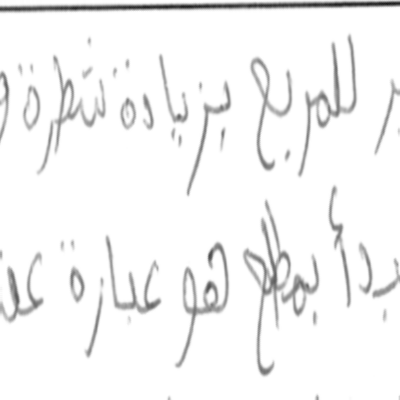 للمربع بزيادة شطرة
يبدأ بمطلع هو عبارة عن